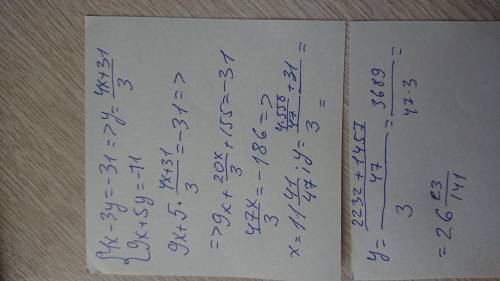 4x-3y=-31=>y=(4x+31)/3
9x+5y=-11
9x+5·(4x+31)/3=-31=>
=>9x+20x/3+155=-31
47x/3=-186=>
x=11 41/47; y=(4·558/47+31)/3=
y=((2232+1457)/47)/3=3689/(47·3)=
=26 23/141